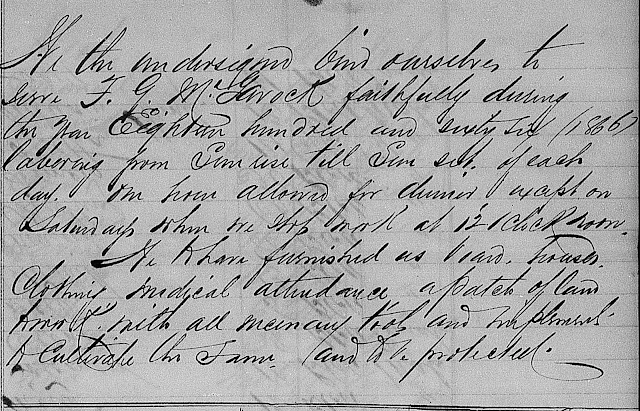 We the undersigned bind ourselves to
serve F. G. McGavock faithfully during
the year Eighteen hundred and sixty six (1866)
laboring from Sun rise till Sun set, of each
day. One hour allowed for dinner except on
Saturdays when we stop work at 12 Oclock noon.
We to have furnished us board, houses,
Clothing, medical attendance a patch of land
with all necessary tools and implements
to Cultivate the Same. (and to be protected.